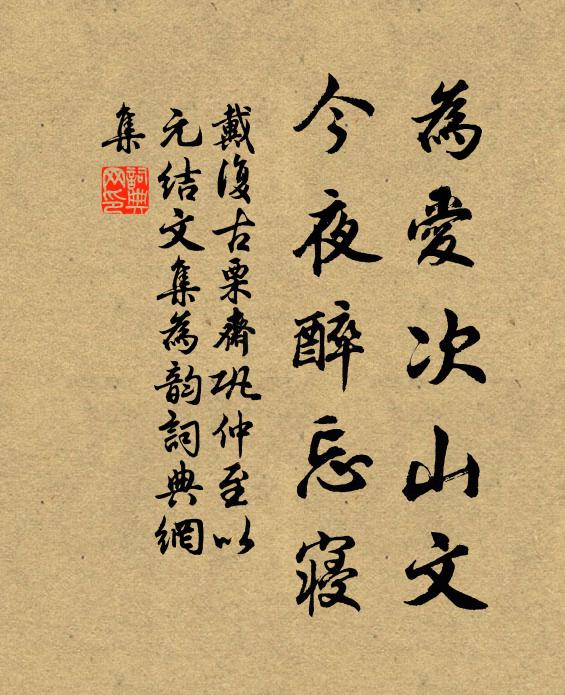 為愛次山文
今夜醉忘寢
戴復古栗齋巩仲至以
元結文集為韵詞典網
集
詞典網印